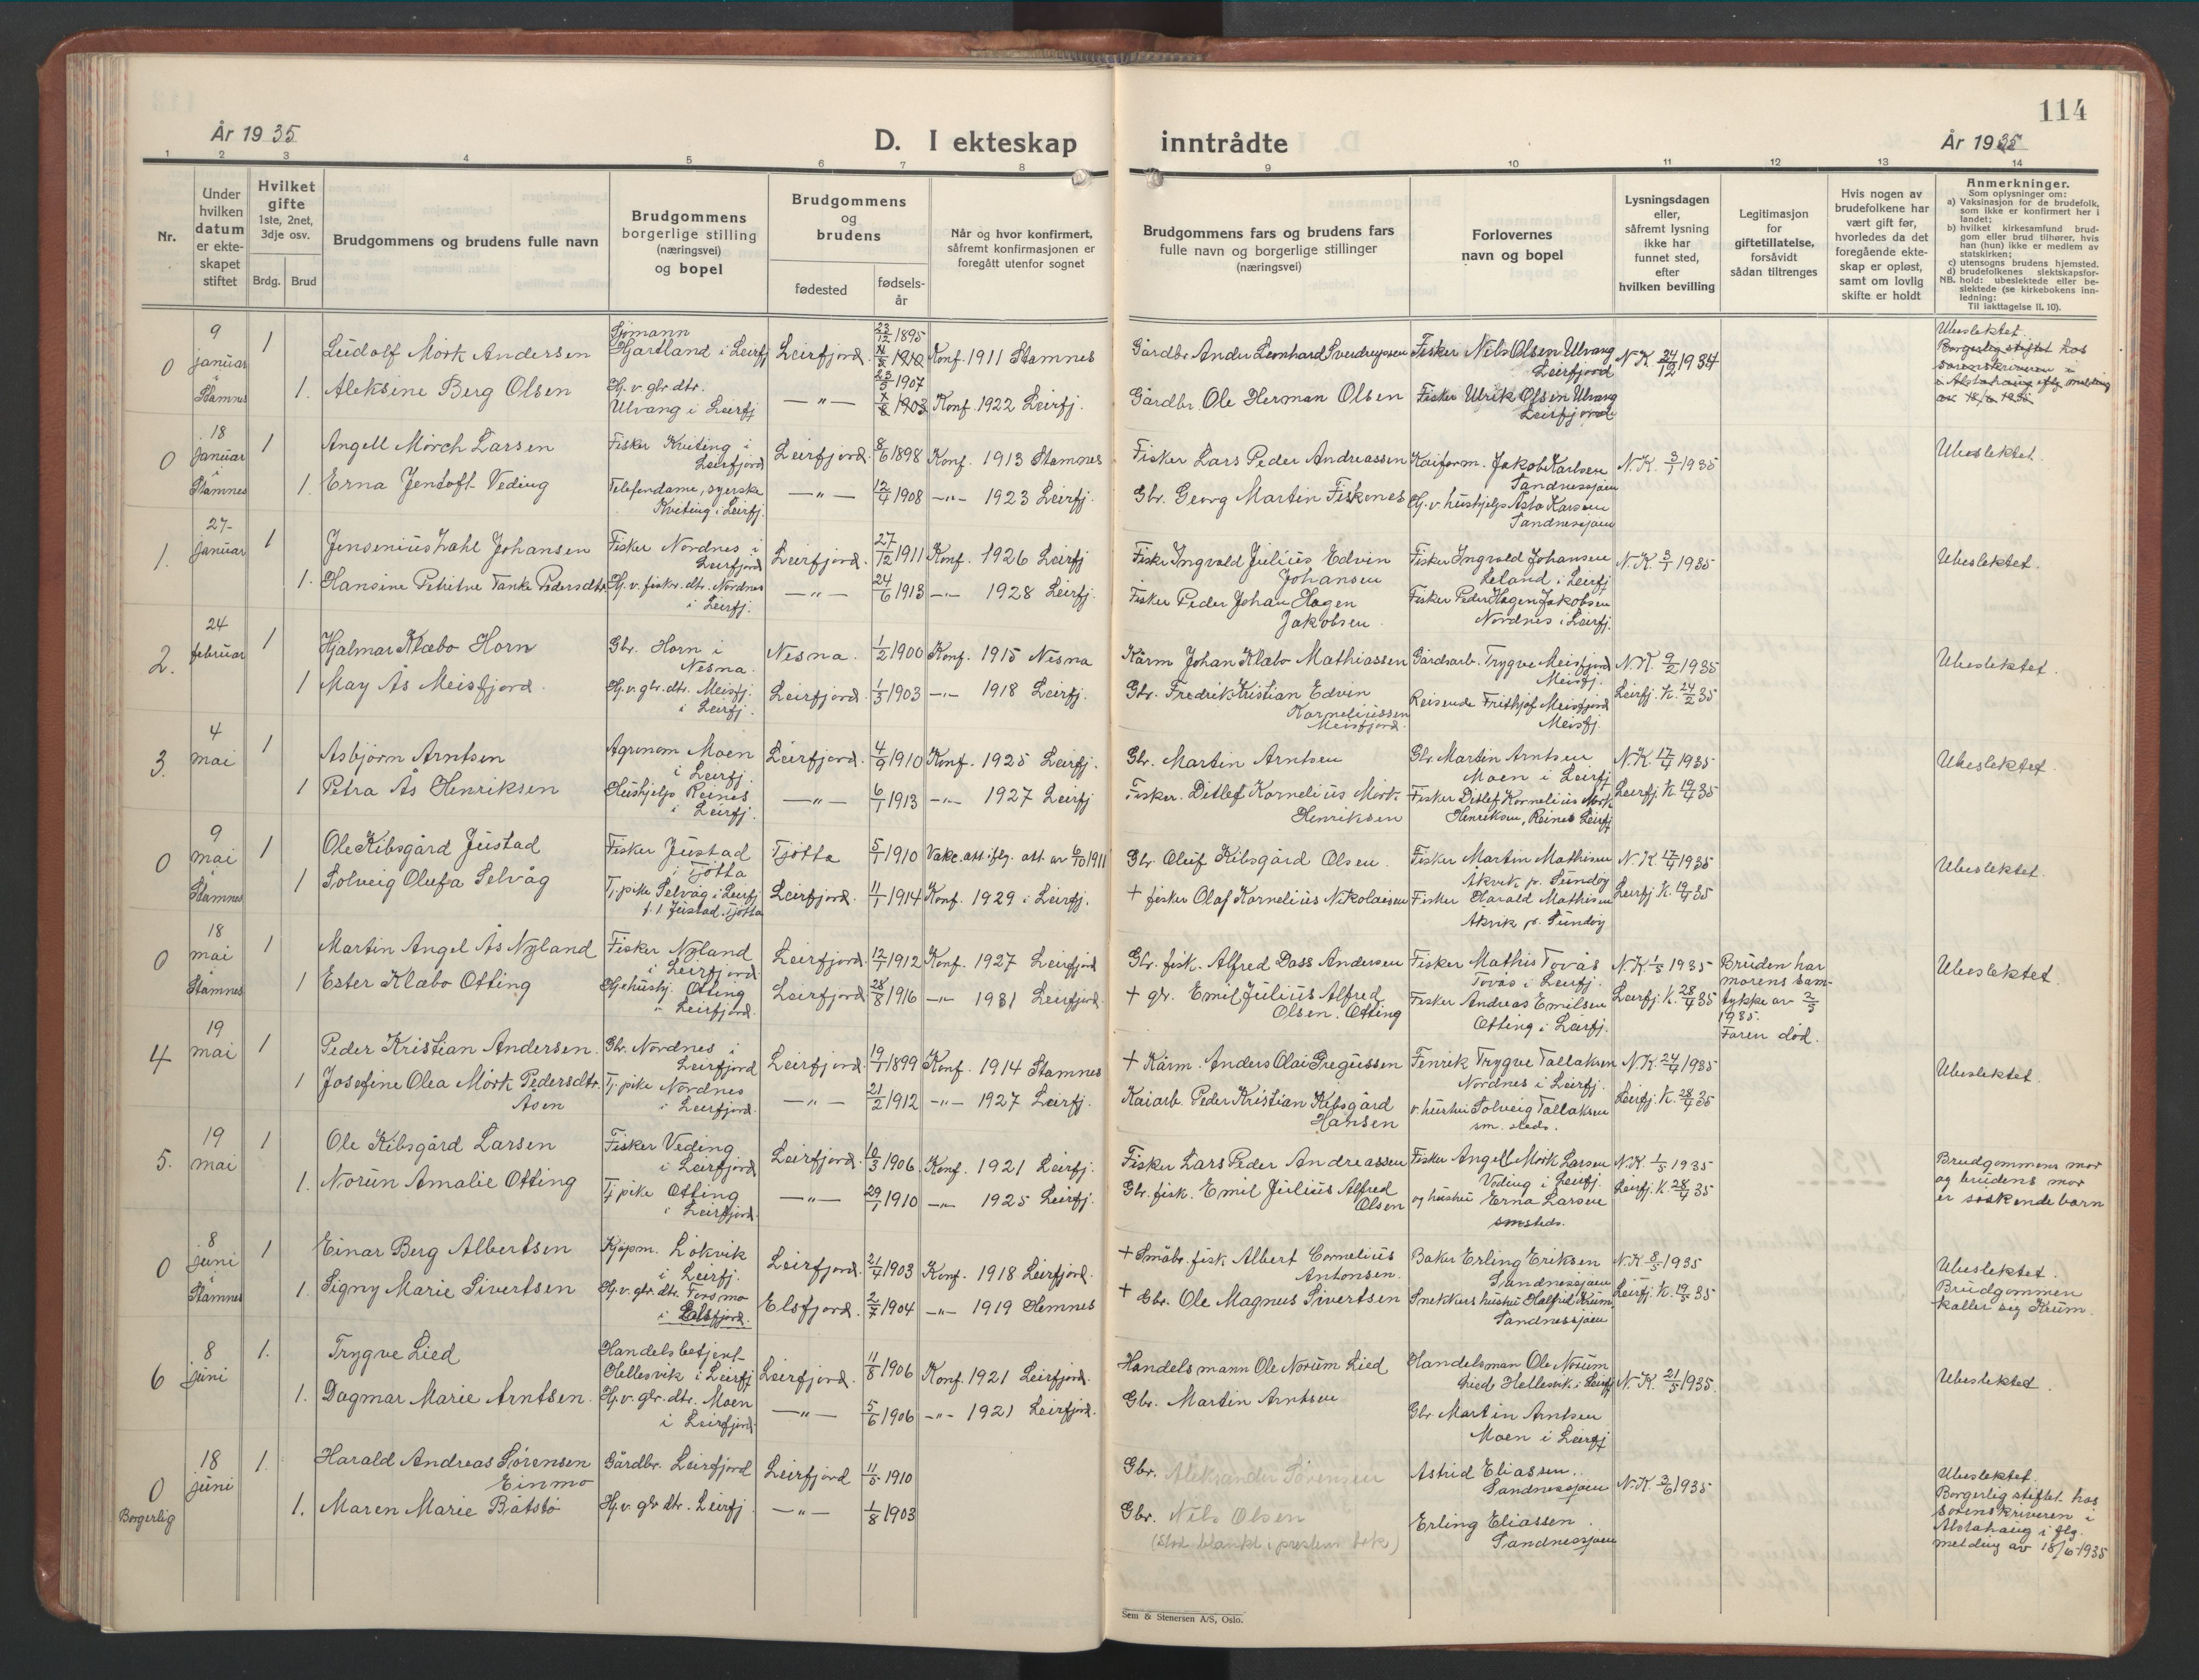 114
År 1935
D. I ekteskap
inntrådte
År 1935
1 2 3 4 5 6 7 8 9 10 11 12 13 14
Nr.
Under
hvilken
datum
er ekte-
skapet
stiftet
Hvilket
gifte
1ste, 2net,
3dje osv.
Brdg.
Brud
Brudgommens og brudens fulle navn
Brudgommens
borgerlige stilling
(næringsvei)
og bopel
Brudgommens
og
brudens
fødested
fødsels-
år
Når og hvor konfirmert,
såfremt konfirmasjonen er
foregått utenfor sognet
Brudgommens fars og brudens fars
fulle navn og borgerlige stillinger
(næringsvei)
Forlovernes
navn og bopel
Lysningsdagen
eller,
såfremt lysning
ikke har
funnet sted,
efter
hvilken bevilling
Legitimasjon
for
giftetillatelse,
forsåvidt
sådan tiltrenges
Hvis nogen av
brudefolkene har
vært gift før,
hvorledes da det
foregående ekte-
skap er opløst,
samt om lovlig
skifte er holdt
Anmerkninger.
Som oplysninger om:
a) Vaksinasjon for de brudefolk,
som ikke er konfirmert her i
landet;
b) hvilket kirkesamfund brud-
gom eller brud tilhører, hvis
han (hun) ikke er medlem av
statskirken;
c) utensogns brudens hjemsted.
d) brudefolkenes slektskapsfor-
NB. hold: ubeslektede eller be-
slektede (se kirkebokens inn-
ledning:
Til iakttagelse II. 10).
0
9
januar
i
Stamnes
1
Ludolf Mørk Andersen
Sjømann
Hjartland i Leirfj
Leirfjord
23/12 1895
Konf. 1911 Stamnes
Gårdbr. Anders Leonhard Sverdrupsen
Fisker Nils Olsen Ulvang
Leirfjord
N.K. 24/12 1934
Ubeslektet.
Borgerlig stiftet hos
sorenskriveren i
Alstahaug iflg melding
av 18/6 1935
1.
Aleksine Berg Olsen
Hj. v. gbr. dtr.
Ulvang i Leirfj
—"—
23/5 1907
Konf. 1922 Leirfj.
Gårdbr. Ole Herman Olsen
Fisker Ulrik Olsen Ulvang
Leirfjord
0
18
januar
i
Stamnes
1
Angell Mørch Larsen
Fisker Kviting i
Leirfjord
Leirfjord.
8/6 1898
Konf. 1913 Stamnes
Fisker Lars Peder Andreassen
Kaiform. Jakob Karlsen
Sandnessjøen
N.K. 3/1 1935
Ubeslektet.
1.
Erna Jentoft Veding
Telefondame, syerske
Kviting i Leirfj.
—"—
12/4 1908
—"— 1923 Leirfj.
Gbr. Georg Martin Fiskenes
Hj. v. hushjelp Asta Karsen
Sandnessjøen
1.
27-
januar
1
Jensenius Dahl Johansen
Fisker Nordnes i
Leirfjord
Leirfjord.
27/12 1911
Konf. 1926 Leirfj
Fisker Ingvald Julius Edvin
Johansen
Fisker Ingvald Johansen
Leland i Leirfj
N.K. 3/1 1935
Ubeslektet.
1.
Hansine Petrine Tanke Pedersdtr.
Hj. v. fisker. dtr. Nordnes
i Leirfj.
—"—
24/6 1913
—"— 1928 Leirfj.
Fisker Peder Johan Hagen
Jakobsen
Fisker Peder Hagen Jakobsen
Nordnes i Leirfj.
2.
24
februar
1
Hjalmar Klæbo Horn
Gbr. Horn i
Nesna.
Nesna.
1/2 1900
Konf. 1915 Nesna
Kårm Johan Klæbo Mathiassen
Gårdsarb. Trygve Meisfjord
Meisfj.
N.K. 9/2 1935
Ubeslektet.
1
May Ås Meisfjord.
Hj. v. gbr. dtr. Meisfj.
i Leirfj.
Leirfjord.
1/3 1903
—"— 1918 Leirfj.
Gbr. Fredrik Kristian Edvin
Korneliussen
Meisfjord.
Reisende Frithjof Meisfjord
Meisfj.
Leirfj. K. 24/2 35
3.
4
mai
1
Asbjørn Arntsen
Agronom Moen
i Leirfj.
Leirfjord.
4/9 1910
Konf. 1925 Leirfj.
Gbr. Martin Arntsen
Gbr. Martin Arntsen
Moen i Leirfj
N.K. 17/4 1935
Ubeslektet.
1
Petra Ås Henriksen
Hushjelp Reines
i Leirfj.
—"—
6/1 1913
—"— 1927 Leirfj
Fisker. Ditlef Kornelius Mørk
Henriksen
Fisker Ditlef Kornelius Mørk
Henriksen, Reines Leirfj
Leirfj. K. 19/4 35
0
9
mai
i
Stamnes
1
Ole Kibsgård Justad
Fisker Justad
i Tjøtta
Tjøtta
5/1 1910
Vakc. att. iflg. att. av 6/10 1911
Gbr Oluf Kibsgård Olsen.
Fisker Martin Mathisen
Åkvik p. Sundøy
N.K. 17/4 1935
Ubeslektet.
1
Solveig Olufa Selvåg
Tj. pike Selvåg i Leirfj
f. t. Justad, Tjøtta
Leirfjord.
11/1 1914
Konf. 1929 i Leirfj.
+ fisker Olaf Kornelius Nikolaisen
Fisker Harald Mathisen
Åkvik p. Sundøy
Leirfj. K. 19/4 35
0
18
mai
i
Stamnes
1
Martin Angel Ås Nyland
Fisker Nyland
i Leirfjord
Leirfjord.
12/1 1912
Konf. 1927 Leirfjord
Gbr. fisk. Alfred Dass Andersen
Fisker Mathis Tovås
Tovås i Leirfj.
N.K. 1/5 1935
Bruden har
morens sam-
tykke av 2/5
1935.
Faren död.
Ubeslektet.
1
Ester Klæbo Otting
Hjehushj. Otting
i Leirfjord.
Leirfjord
28/8 1916
—"— 1931 Leirfjord.
+ gbr. Emil Julius Alfred
Olsen. Otting
Fisker Andreas Emilsen
Otting i Leirfj.
Leirfj. K. 28/4 35
4
19
mai
1
Peder Kristian Andersen.
Gbr. Nordnes i
Leirfjord
Leirfjord.
19/1 1899
Konf. 1914 Stamnes
+ Kårm. Anders Olai Gregussen
Fenrik Trygve Tallaksen
Nordnes i Leirfj.
N.K. 24/4 1935
Ubeslektet.
1
Josefine Olea Mørk Pedersdtr.
Åsen
Tj. pike Nordnes
i Leirfjord.
—"—
21/2 1912
—"— 1927 Leirfj.
Kaiarb. Peder Kristian Kibsgård
Hansen
v. hustru Solveig Tallaksen
sm. steds.
Leirfj. K. 28/4 35
5.
19
mai
1
Ole Kibsgård Larsen
Fisker Veding
i Leirfjord
Leirfjord.
10/3 1906.
Konf. 1921 Leirfj.
Fisker Lars Peder Andreassen
Fisker Angell Mørk Larsen
Veding i Leirfj.
N.K. 1/5 1935
Brudgommens mor
og brudens mor
er søskendebarn
1.
Norun Amalie Otting
Tj pike Otting
i Leirfjord.
—"—
29/1 1910
—"— 1925 Leirfj.
Gbr. fisk. Emil Julius Alfred
Olsen
og hustru Erna Larsen
smsteds.
Leirfj. K. 28/4 35
0
8
juni
i
Stamnes
1
Einar Berg Albertsen
Kjøpm. Løkvik
i Leirfj.
Leirfjord.
21/4 1903
Konf. 1918 Leirfjord.
+ Småbr. fisk Albert Cornelius
Antonsen.
Baker Erling Eriksen
Sandnessjøen
N.K. 8/5 1935
Ubeslektet.
Brudgommen
kaller seg Krum.
1.
Signy Marie Sivertsen
Hj. v. gbr. dtr. Forsmo
i Elsfjord.
Elsfjord.
2/7 1904
—"— 1919 Hemnes
+ Gbr. Ole Magnus Sivertsen
Snekkers hustru Halfrid Krum,
Sandnessjøen
Leirfj. K. 19/5 35
6
8
juni
1.
Trygve Lied
Handelsbetjent
Hellesvik i Leirfj
Leirfjord.
11/8 1906
Konf. 1921 Leirfjord.
Handelsmann Ole Norum Lied
Handelsman Ole Norum
Lied Hellesvik i Leirfj
N.K. 21/5 1935.
Ubeslektet.
1.
Dagmar Marie Arntsen.
Hj. v. gbr. dtr. Moen
i Leirfjord.
—"—
5/6 1906
—"— 1921 Leirfjord.
Gbr. Martin Arntsen
Gbr Martin Arntsen
Moen i Leirfj
0
Borgerlig
18
juni
1.
Harald Andreas Sørensen
Einmo
Gårdbr. Leirfjord
Leirfjord
11/5 1910
Gbr. Aleksander Sørensen
Astrid Eliassen.
Sandnessjøen
N.K. 3/6 1935
Ubeslektet.
Borgerlig stiftet hos
sorenskriveren i
Alstahaug i flg.
melding av 18/6-1935
1.
Maren Marie Båtstø
Hj. v. gbr dtr. Leirfj.
—"—
1/8 1903
Gbr. Nils Olsen
(Stod blankt i prestens bok)
Erling Eliassen.
Sandnessjøen
Sem & Stenersen A/S, Oslo.